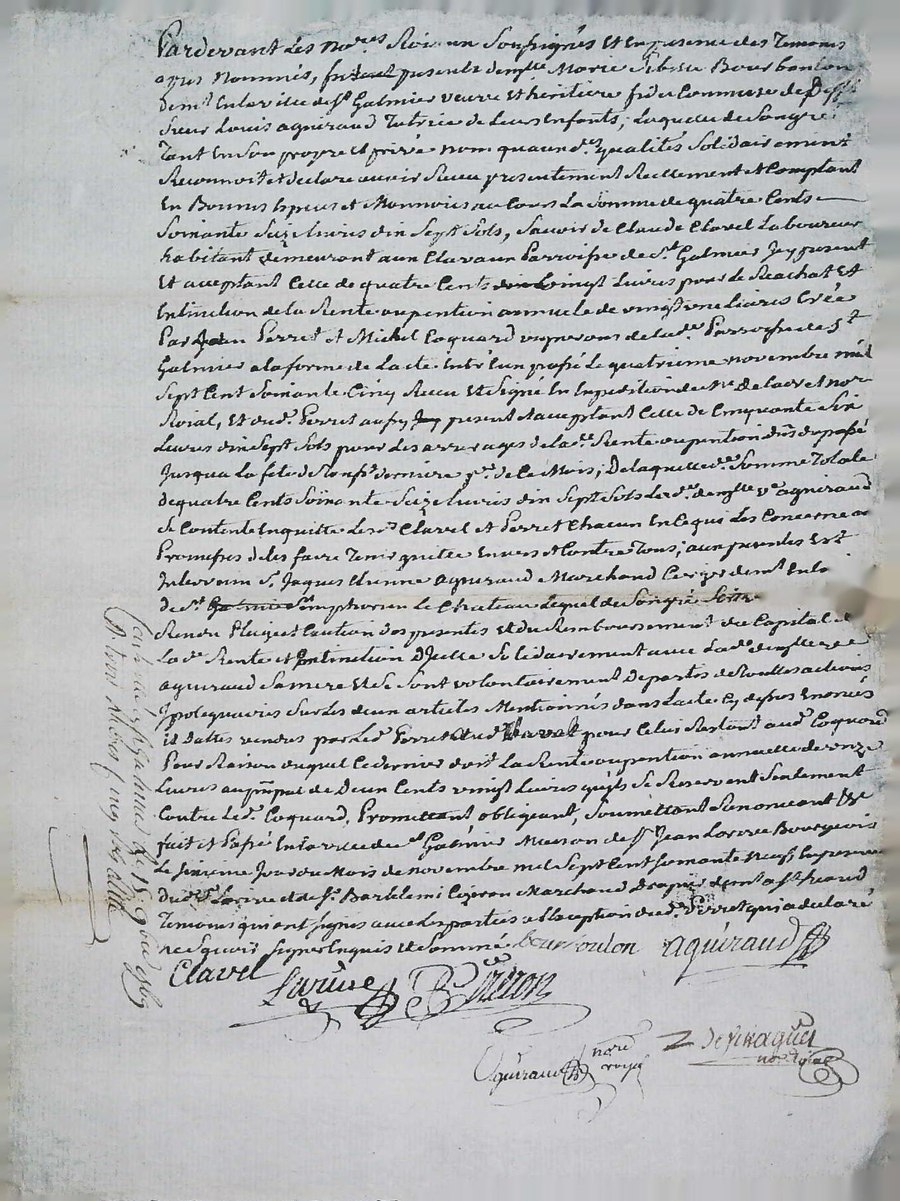 Pardevant Les no.res Roiaux Soussignés Et En presence des Temoins
apres Nommés, fut presente demlle Marie Sibille Bourboulon
dem.t En la ville de s.t Galmier veuve Et héritiere fiduCommise de
Sieur Louis aguiraud Tutrice de Leurs Enfants, Laquelle de Son gré
Tant En Son propre Et privé nom quaux d.es qualités Solidairement
Reconnoit et declare avoir Receu presentement Reellement et Comptant
En Bonnes Especes et Monnoies au Cours La Somme de quatre Cents
Soixante Seize Livres dix Sept Sols, Scavoir de Claude Clavel Laboureur
habitant demeurant aux Clavaux Parroisse de s.t Galmier Icy present
Et acceptant Celle de quatre Cents vingt Livres pour le Reachat Et
Extinction de la Rente ou pention annuelle de vingt une Livres Créé
Par Jean Perret et Michel Coquard vignerons de lad.e Parroisse de s.t
Galmier a la forme de Lacte Entr'eux passé Le quatrieme novembre mil
Sept Cent Soixante Cinq Receu Et Signé En Expedition de M.e Delaval nore
Roial, Et dud. Perret aussy Icy present et acceptant Celle de Cinquante Six
Livres dix Sept Sols pour Les arrerages de la d.e Rente ou pention
Jusqua La fete de Toussts derniere p.er de Ce Mois, De laquelle d.e Somme Totale
de quatre Cents Soixante Seize Livres dix Sept Sols Lad.e demlle v.e aguiraud
Se Contente En quitte Les d.s Clavel et Perret Chacun En Ce qui Les Concerne
Promesses de les faire Tenir quitte Envers et Contre Tous; aux presentes Est
Intervenu S.r Jaques Etienne aguiraud Marchand Cirier dem.t En la
de s.t Simphorien Le Chateau Lequel de Son gré
Rendu Pleige et Caution des presentes et du Remboursement du Capital de
La d.e Rente et Extinction D'Icelle Solidairement avec La d.e demlle
aguiraud Sa mere Et Se Sont volontairement Departis de Toutes actions
Ipotequaires Sur Les deux articles Mentionnés dans Lacte Cy dessus Enoncés
Et dattés vendus par Led. Perret aud. Clavel pour Celui Restant aud. Coquard
Pour Raison duquel Ce dernier doit La Rente ou pention annuelle de onze
Livres au ppal de Deux Cents vingt Livres quils Se Reservent Seulement
Contre Led. Coquard, Promettant obligeant, Soumettant Renonceant &c
fait et Passé En la ville de s.t Galmier Maison de s.r Jean Larue Bourgeois
Le Sixieme Jour du Mois de novembre mil Sept Cent Soixante neuf En presence
Dud. s.r Larue et de s.r Barthelemi Cizeron Marchand drapier dem.t a s.t heand
Temoins qui ont Signés avec Les parties a L'exception dud. Perret qui a declaré
ne Scavoir Signer Enquis Et Sommé. Bourboulon aguiraud
Clavel
Larüe B Cizeron
Aguiraud nore royal
De Viraguet
nore roial